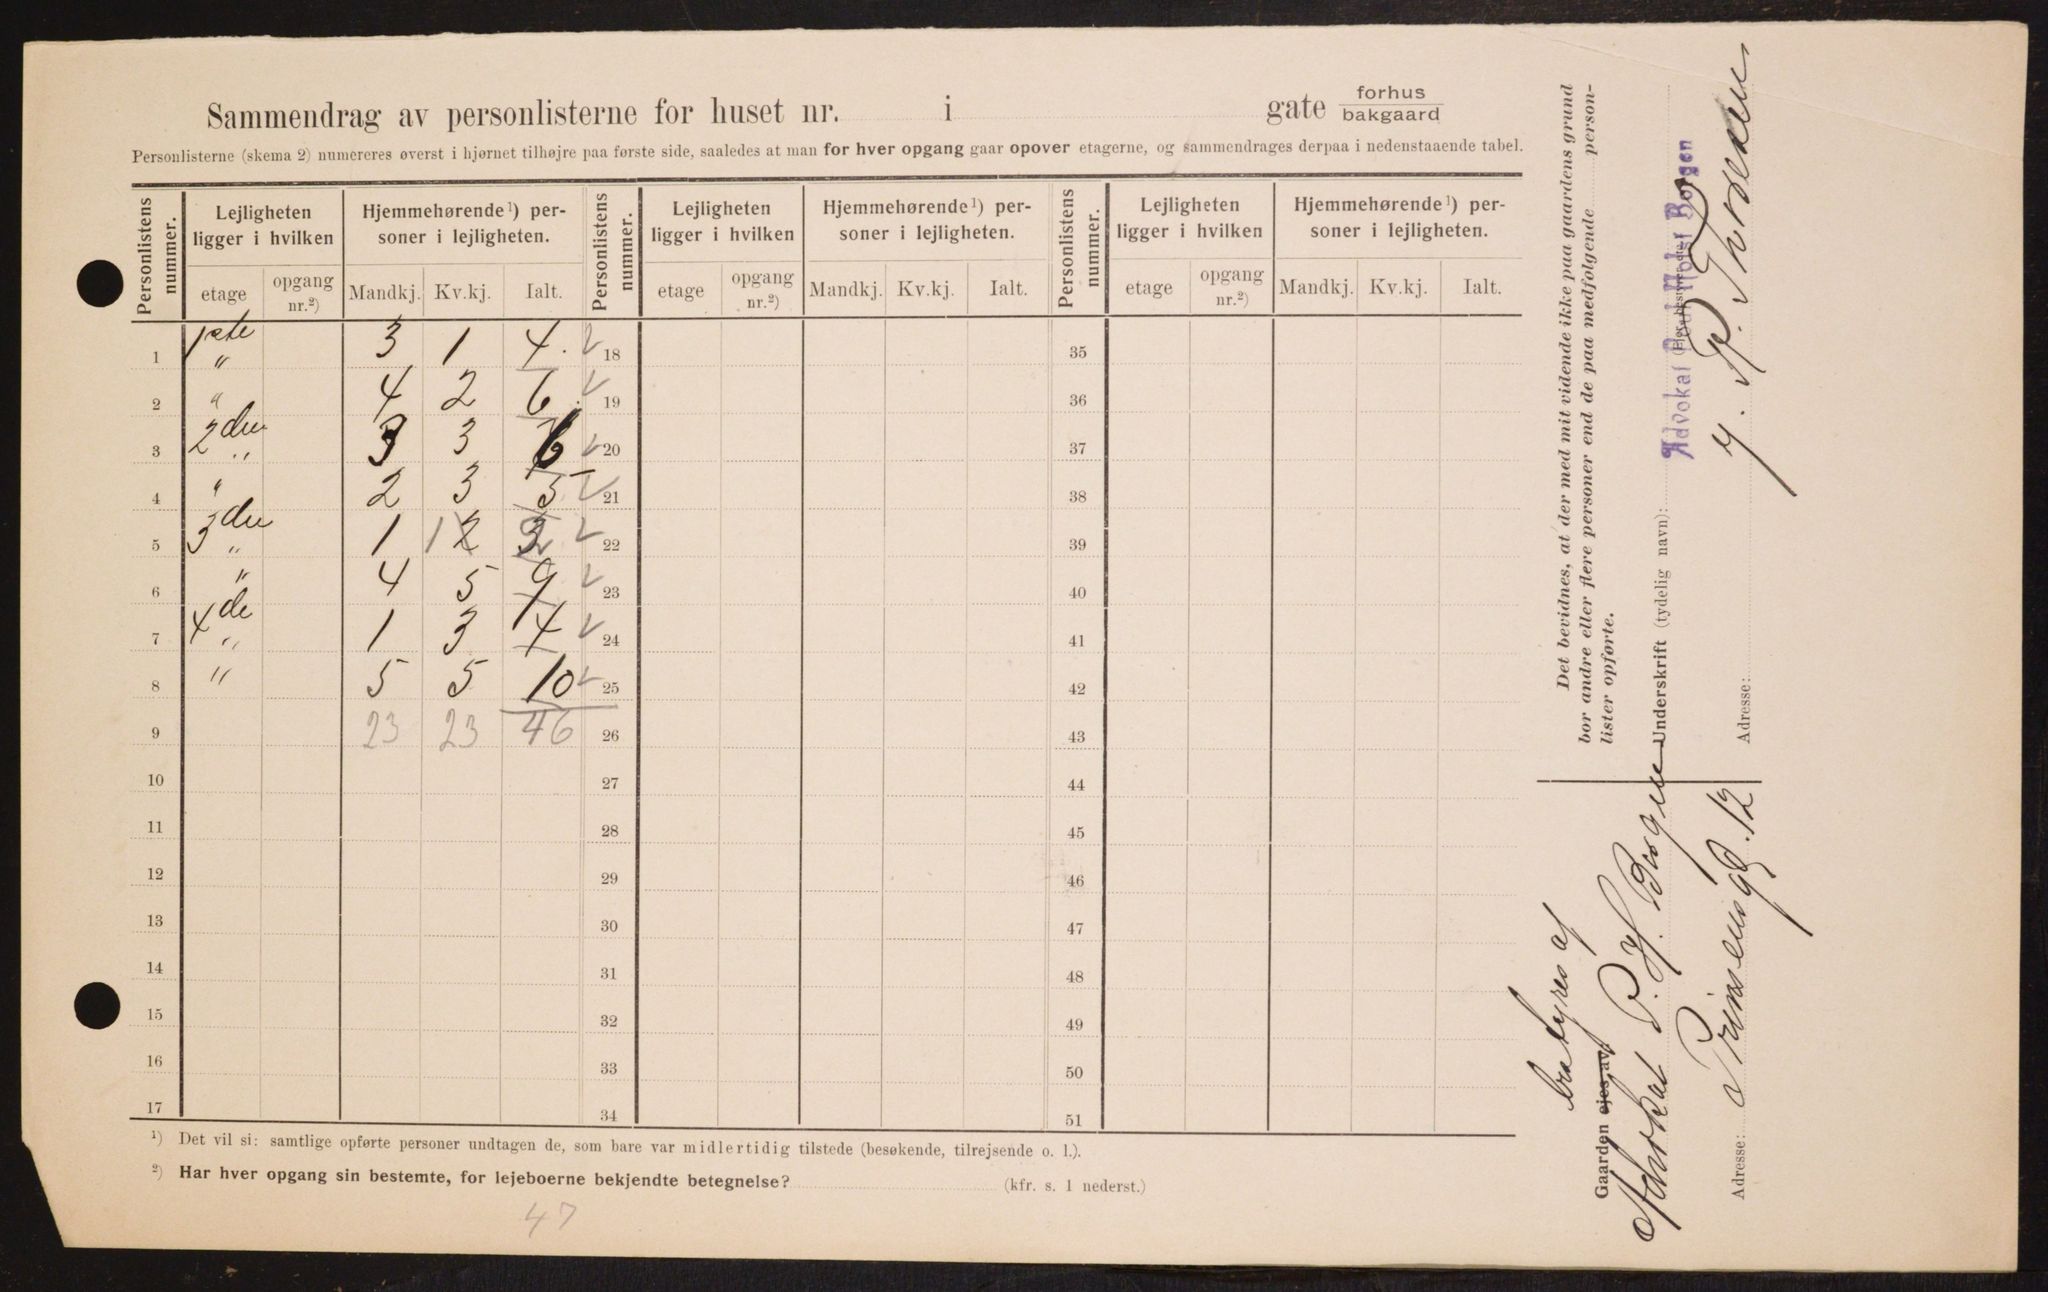 Sammendrag av personlisterne for huset nr. i gate forhus
bakgaard
Personlisterne (skema 2) numereres øverst i hjørnet tilhøjre paa første side, saaledes at man for hver opgang gaar opover etagerne, og sammendrages derpaa i nedenstaaende tabel.
Personlistens nummer. Lejligheten ligger i hvilken Hjemmehørende¹) personer i lejligheten. Personlistens nummer. Lejligheten ligger i hvilken Hjemmehørende¹) personer i lejligheten. Personlistens nummer. Lejligheten ligger i hvilken Hjemmehørende¹) personer i lejligheten.
etage opgang nr.²) Mandkj. Kv.kj. Ialt. etage opgang nr.²) Mandkj. Kv.kj. Ialt. etage opgang nr.²) Mandkj. Kv.kj. Ialt.
1 1ste " 3 1 4. 18 35
2 " 4 2 6. 19 36
3 2den " 3 3 6 20 37
4 " 2 3 5 21 38
5 3die " 1 1 2 3 2 22 39
6 " 4 5 9 23 40
7 4de " 1 3 4 24 41
8 " 5 5 10 25 42
9 23 23 46 26 43
10 27 44
11 28 45
12 29 46
13 30 47
14 31 48
15 32 49
16 33 50
17 34 51
¹) Det vil si: samtlige opførte personer undtagen de, som bare var midlertidig tilstede (besøkende, tilrejsende o. l.).
²) Har hver opgang sin bestemte, for lejeboerne bekjendte betegnelse? (kfr. s. 1 nederst.)
47
Det bevidnes, at der med mit vidende ikke paa gaardens grund
bor andre eller flere personer end de paa medfølgende person-
lister opførte.
Underskrift (tydelig navn):
Advokat Poul Holst Borgen
P. Thoresen
Adresse:
bestyres af
Gaarden ejes av:
Advokat P. H. Borgen
Adresse: Prinsensgd. 12